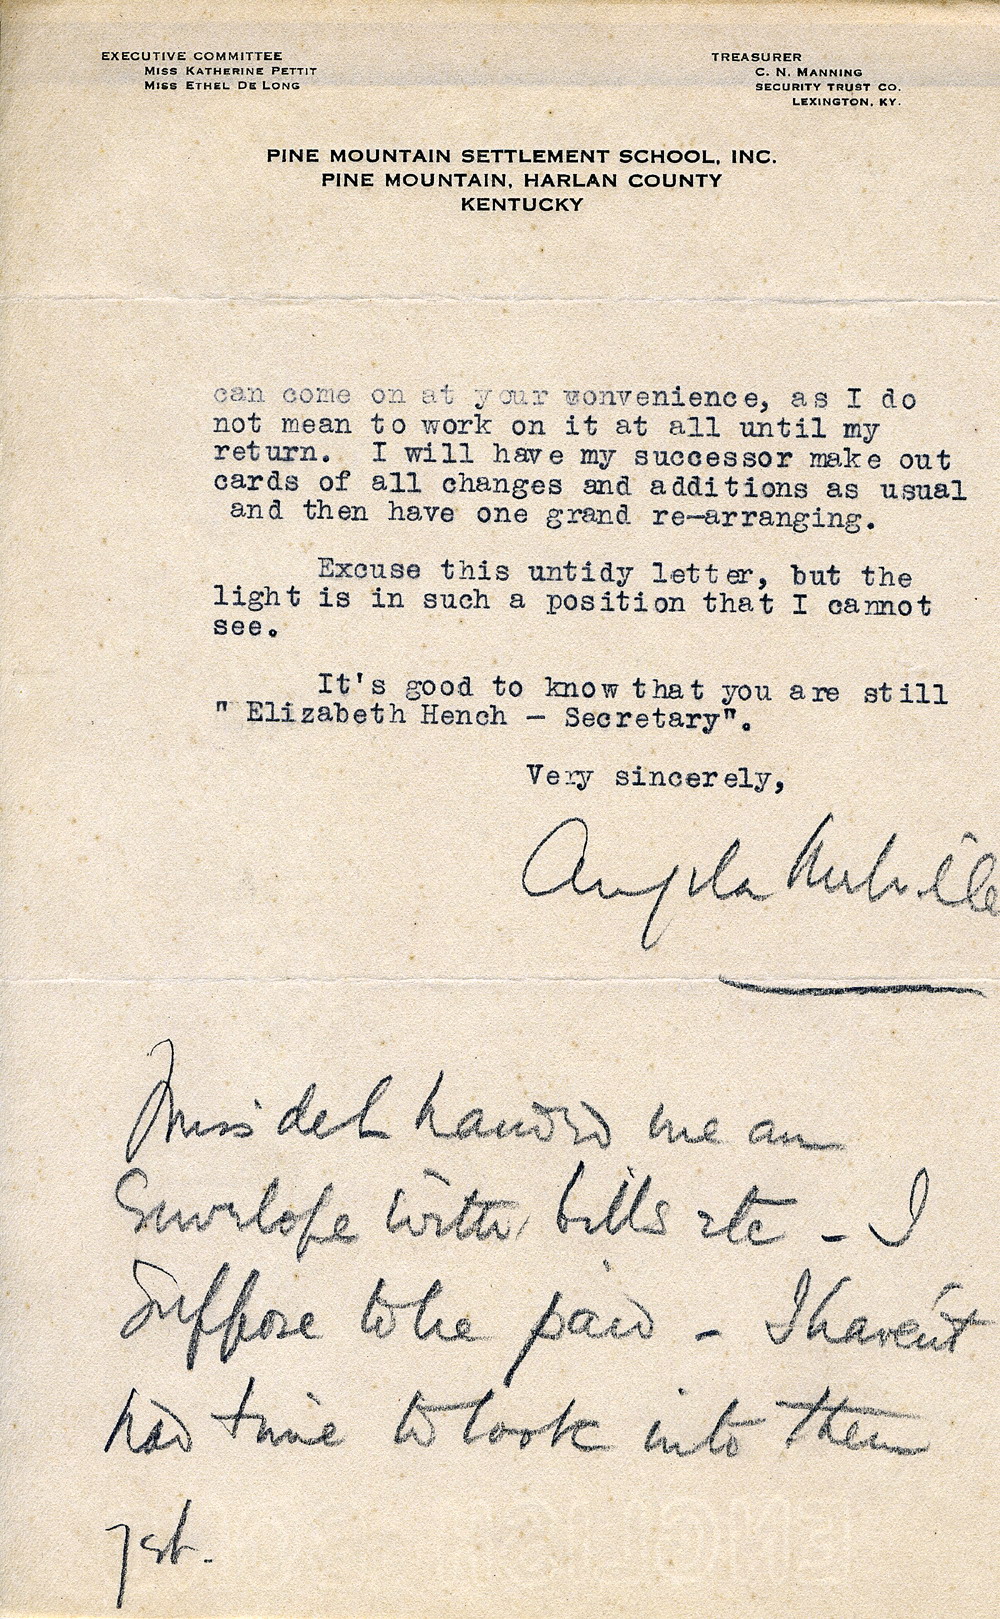 EXECUTIVE COMMITTEE
MISS KATHERINE PETTIT
MISS ETHEL DE LONG
TREASURER
C. N. MANNING
SECURITY TRUST CO.
LEXINGTON, KY.
PINE MOUNTAIN SETTLEMENT SCHOOL, INC.
PINE MOUNTAIN, HARLAN COUNTY
KENTUCKY
can come on at your wonvenience, as I do
not mean to work on it at all until my
return. I will have my successor make out
cards of all changes and additions as usual
and then have one grand re-arranging.
Excuse this untidy letter, but the
light is in such a position that I cannot
see.
It's good to know that you are still
" Elizabeth Hench - Secretary".
Very sincerely,
Angela Melville
Miss deL handed me an
Envelope with bills etc - I
Suppose to be paid - I haven't
had time to look into them
yet.